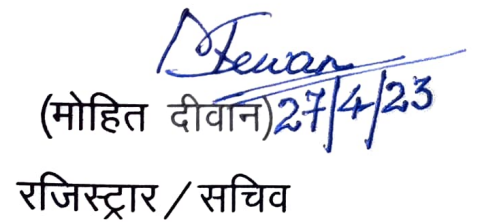 Dewan
(मोहित दीवान) 27/4/23
रजिस्ट्रार / सचिव